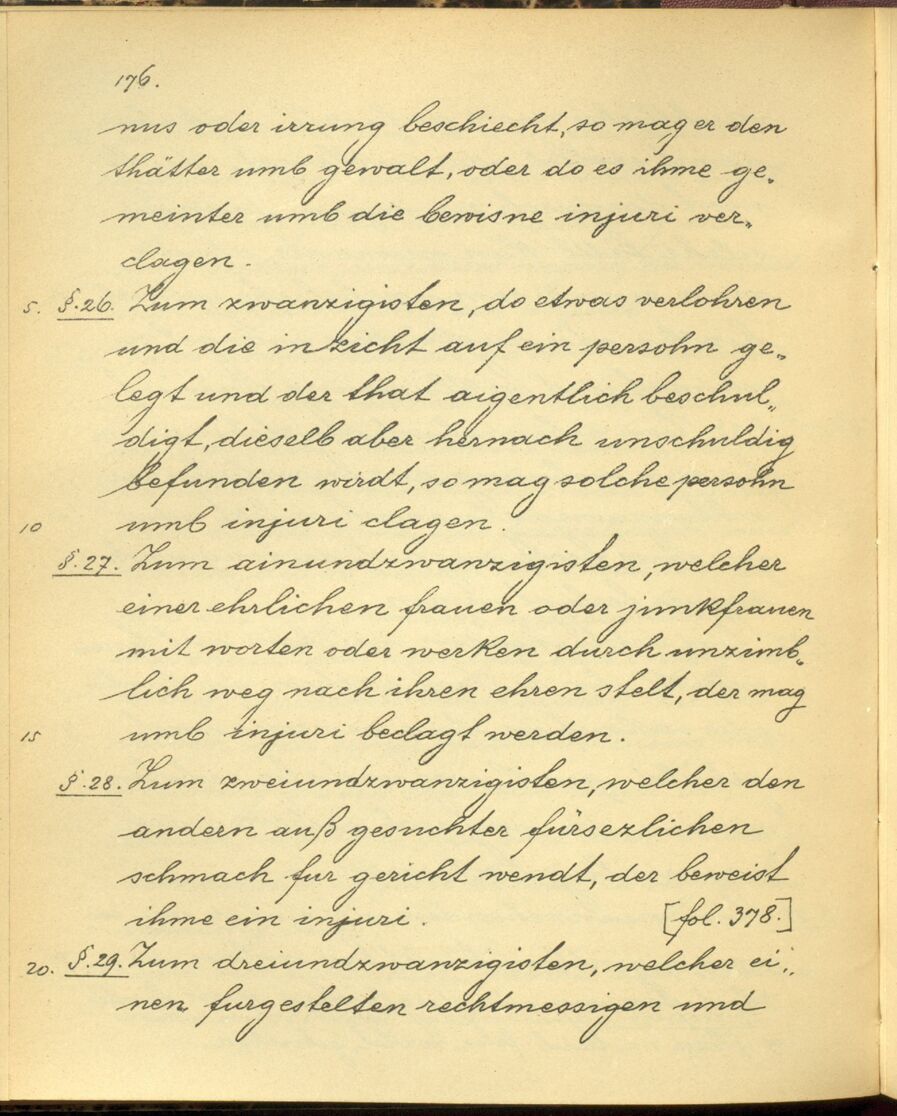 176.
nus oder irrung beschiecht, so mag er den
thätter umb gewalt, oder do es ihme ge„
meinter umb die bewisne injuri ver„
clagen.
5. §.26. Zum zwanzigisten, do etwas verlohren
und die inzicht auf ein persohn ge„
legt und der that aigentlich beschul„
digt, dieselb aber hernach unschuldig
befunden wirdt, so mag solche persohn
10 umb injuri clagen.
§.27. Zum ainundzwanzigisten, welcher
einer ehrlichen frauen oder junkfrauen
mit worten oder werken durch unzimb„
lich weg nach ihren ehren stelt, der mag
15 umb injuri beclagt werden.
§.28. Zum zweiundzwanzigisten, welcher den
andern auß gesuchter fürsezlichen
schmach fur gericht wendt, der beweist
ihme ein injuri. [fol. 378.]
20. §.29. Zum dreiundzwanzigisten, welcher ei„
nen furgestelten rechtmessigen und